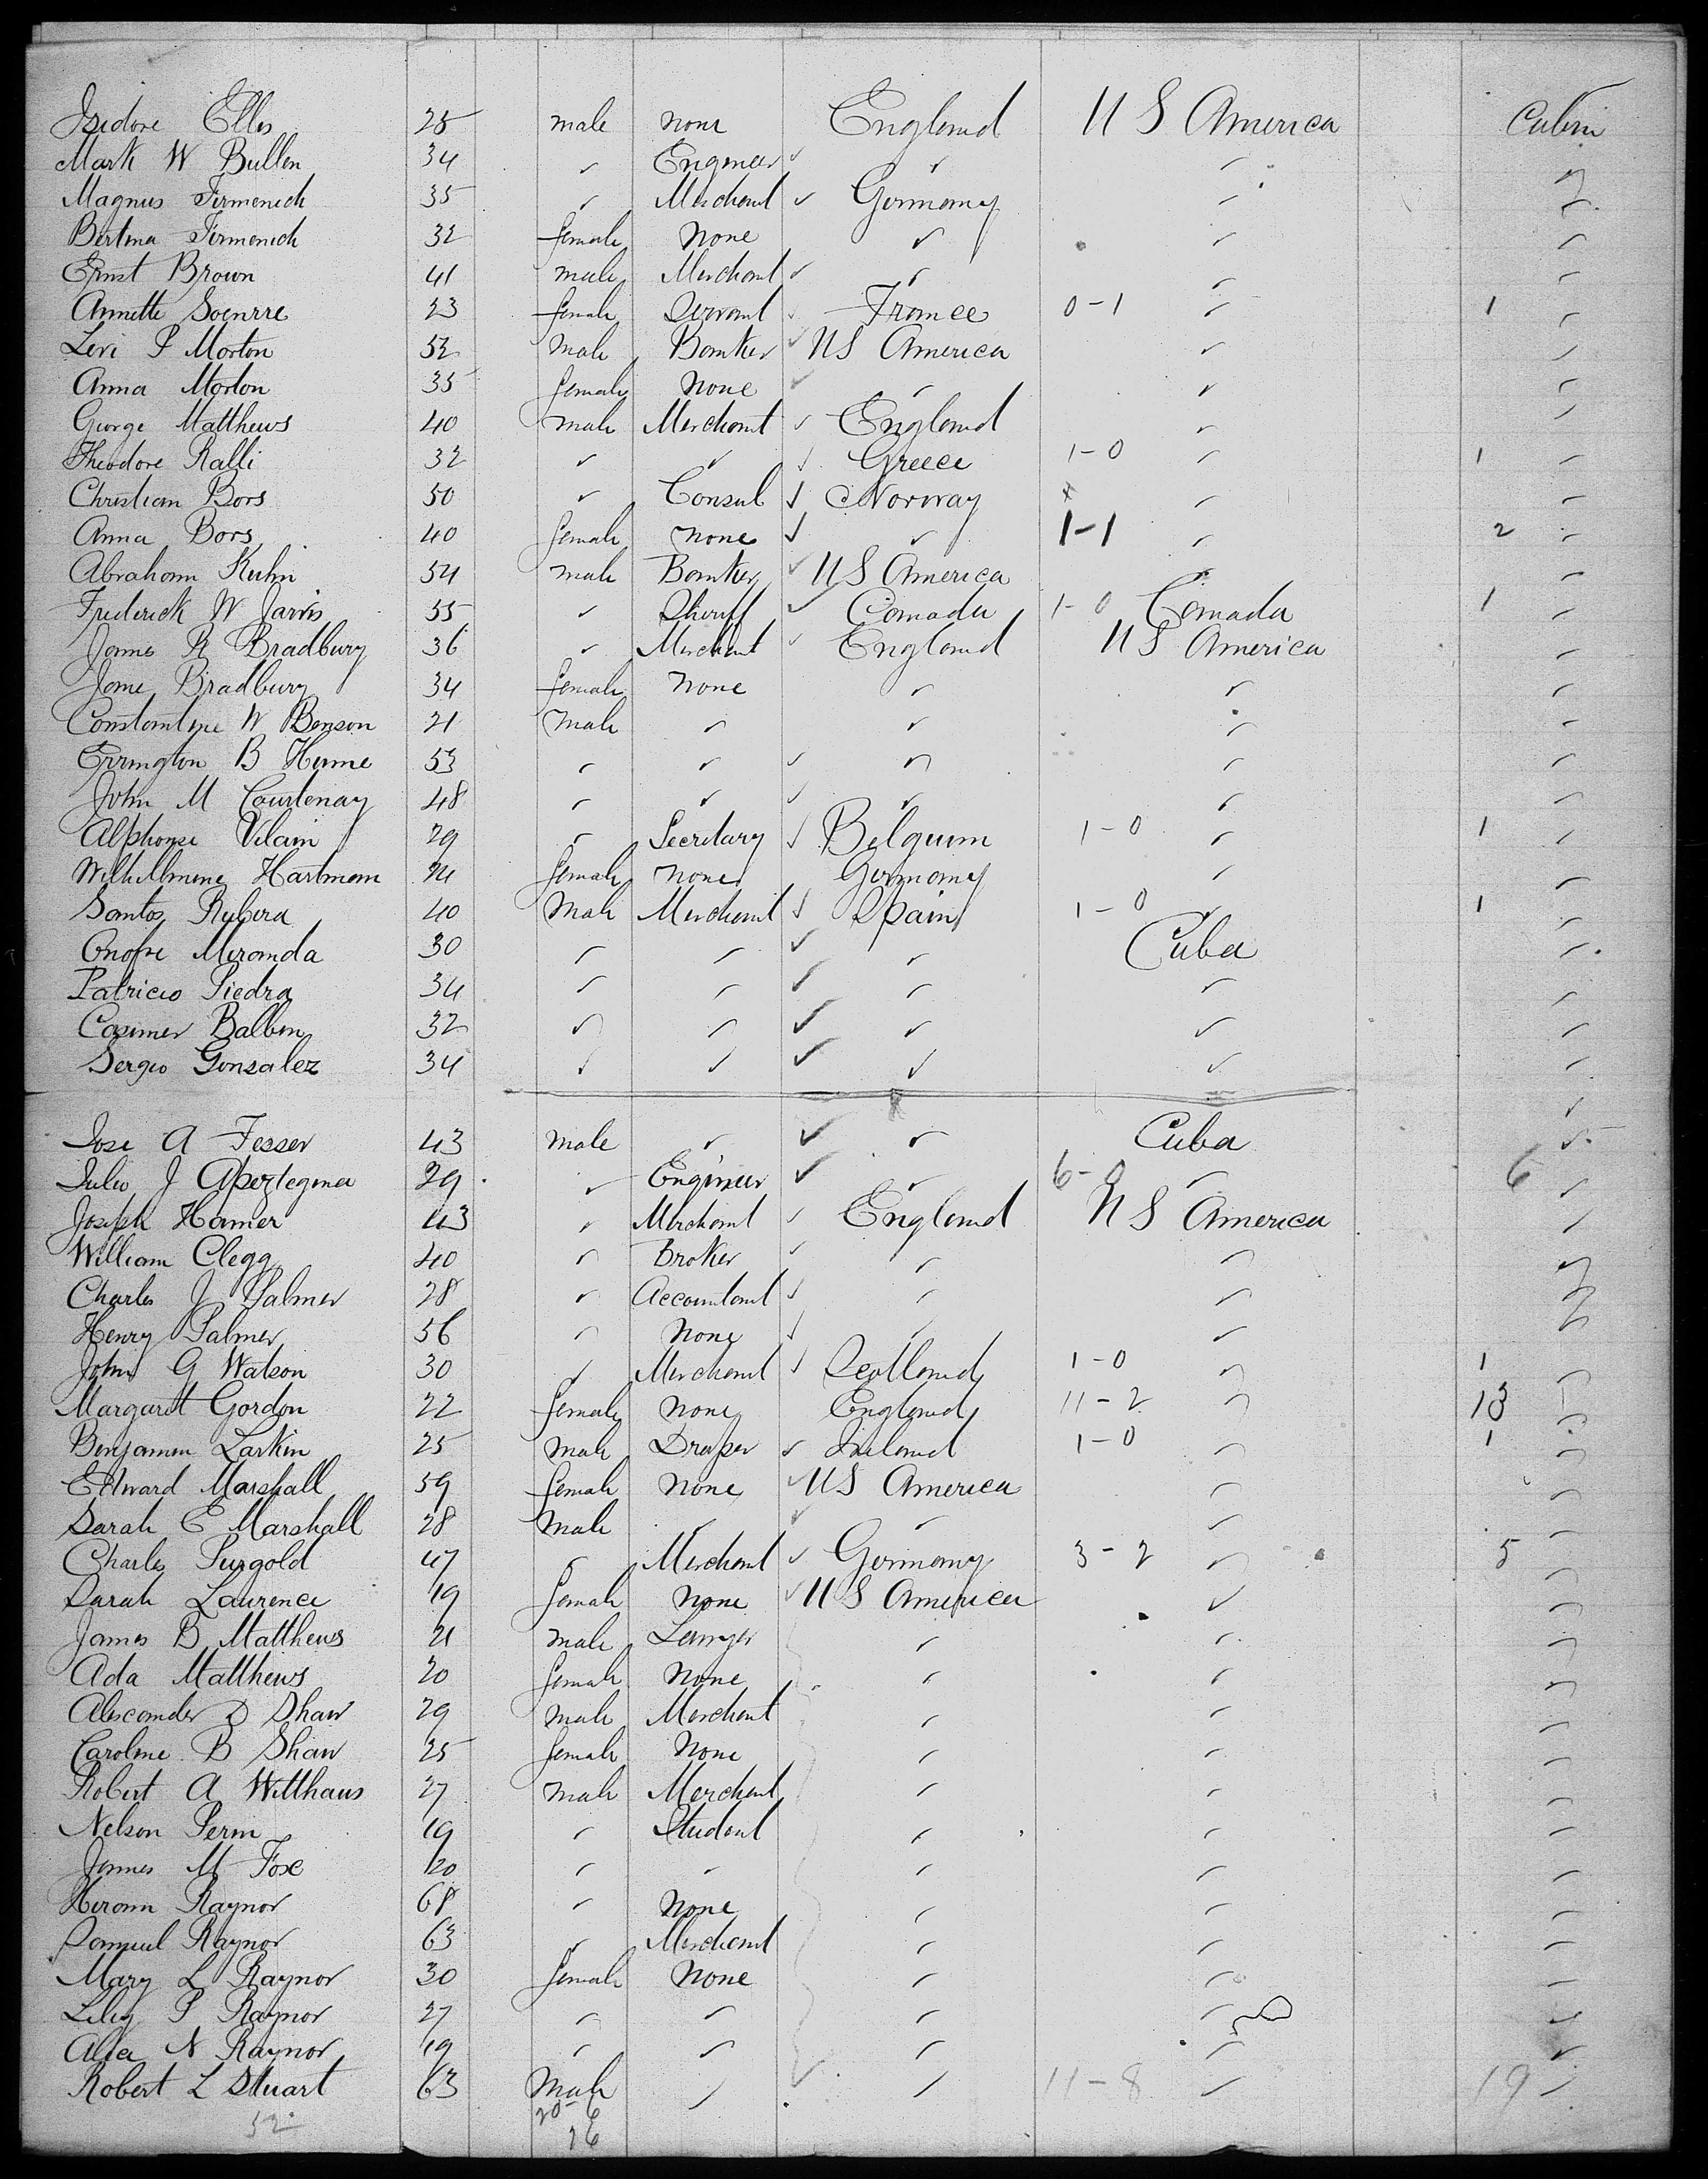 Isidore Elles 25 male none England U S America Cabin
Mark W Bullen 34 ✓ Engineer ✓ ✓ ✓ ✓
Magnus Firmenich 35 ✓ Merchant ✓ Germany ✓ ✓
Bertina Firmenich 32 female None ✓ ✓ ✓
Ernst Brown 41 male Merchant ✓ ✓ ✓ ✓
Annette Soenrre 23 female Servant France 0-1 ✓ 1 ✓
Levi P Morton 52 Male Banker ✓ US America ✓ ✓
Anna Morton 35 female None ✓ ✓ ✓ ✓
George Matthews 40 male Merchant ✓ England ✓ ✓
Theodore Ralli 32 ✓ ✓ ✓ Greece 1-0 ✓ 1 ✓
Christian Bors 50 ✓ Consul ✓ Norway x ✓ ✓
Anna Bors 40 female none ✓ ✓ 1-1 ✓ 2 ✓
Abraham Kuhn 54 male Banker ✓ US America ✓ ✓
Frederick W Jarvis 55 ✓ Sheriff ✓ Canada 1-0 Canada 1 ✓
James R Bradbury 36 ✓ Merchant ✓ England U S America ✓
Jane Bradbury 34 female none ✓ ✓ ✓
Constantine W Benson 21 Male ✓ ✓ ✓ ✓
Errington B Hume 53 ✓ ✓ ✓ ✓ ✓ ✓
John M Courtenay 48 ✓ ✓ ✓ ✓ ✓ ✓
Alphonse Vilain 29 ✓ Secretary ✓ Belguim 1-0 ✓ 1 ✓
Wilhillmine Hartman 24 female none Germany ✓ ✓
Santos Rubera 40 Male Merchant ✓ Spain 1-0 ✓ 1 ✓
Onofre Miranda 30 ✓ ✓ ✓ ✓ Cuba ✓
Patricio Piedra 34 ✓ ✓ ✓ ✓ ✓ ✓
Casimer Balben 32 ✓ ✓ ✓ ✓ ✓ ✓
Sergio Gonzalez 34 ✓ ✓ ✓ ✓ ✓ ✓
Jose A Fesser 43 male ✓ ✓ ✓ Cuba ✓
Julio J Apeztegina 29 ✓ Engineer ✓ ✓ 6-0 ✓ 6 ✓
Joseph Hamer 43 ✓ Merchant ✓ England U S America ✓
William Clegg 40 ✓ Broker ✓ ✓ ✓ ✓
Charles J Palmer 28 ✓ Accountant ✓ ✓ ✓ ✓
Henry Palmer 56 ✓ None ✓ ✓ ✓ ✓
John G Watson 30 ✓ Merchant ✓ Scotland 1-0 ✓ 1 ✓
Margaret Gordon 22 female none England 11-2 ✓ 13 ✓
Benjamen Larkin 25 male Draper ✓ Ireland 1-0 ✓ 1 ✓
Edward Marshall 59 female None ✓ US America ✓ ✓
Sarah E Marshall 28 Male ✓ ✓ ✓ ✓ ✓
Charles Surgold 47 ✓ Merchant ✓ Germany 3-2 ✓ 5 ✓
Sarah Laurence 19 female None ✓ U S America ✓ ✓
James B Matthews 21 male Lawyer ✓ ✓ ✓
Ada Matthews 20 female None ✓ ✓ ✓
Alexander D Shaw 29 male Merchant ✓ ✓ ✓
Caroline B Shaw 25 female None ✓ ✓ ✓
Robert A Witthaus 27 male Merchant ✓ ✓ ✓
Nelson Perin 19 ✓ Student ✓ ✓ ✓
James M Fox 20 ✓ ✓ ✓ ✓ ✓
Hiram Raynor 68 ✓ None ✓ ✓ ✓
Samuel Raynor 63 ✓ Merchant ✓ ✓ ✓
Mary L Raynor 30 female None ✓ ✓ ✓
Liley P Raynor 27 ✓ ✓ ✓ ✓ ✓
Alia N Raynor 19 ✓ ✓ ✓ ✓ ✓
Robert L Stuart 63 Male ✓ ✓ ✓ 11-8 ✓ 19 ✓
52 20-6
26